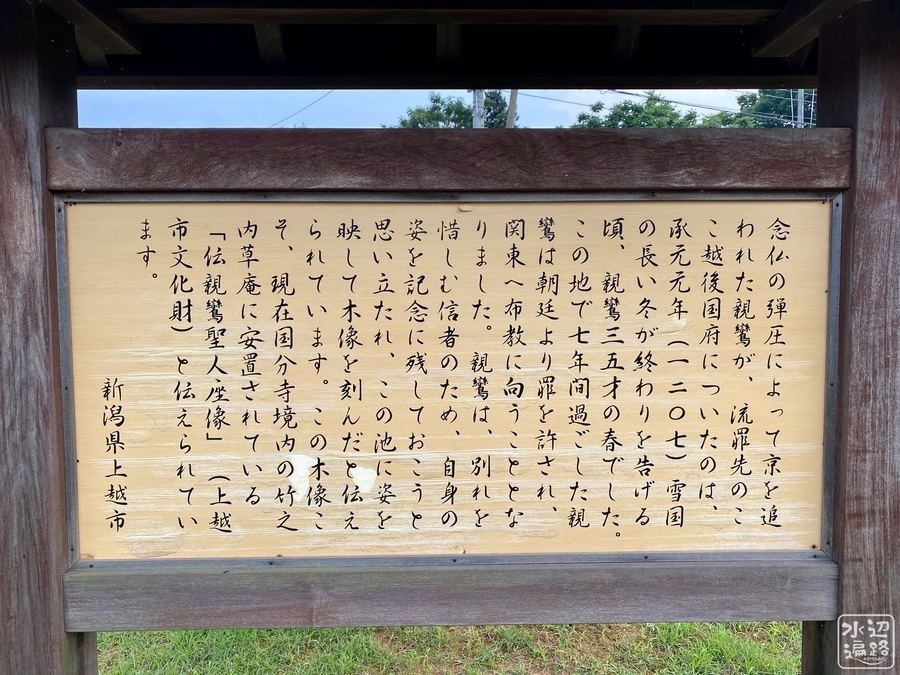 念仏の弾圧によって京を追
われた親鸞が、流罪先のこ
こ越後国府についたのは、
承元元年(一二〇七)雪国
の長い冬が終わりを告げる
頃、親鸞三五才の春でした。
この地で七年間過ごした親
鸞は朝廷より罪を許され、
関東へ布教に向うこととな
りました。親鸞は、別れを
惜しむ信者のため、自身の
姿を記念に残しておこうと
思い立たれ、この池に姿を
映して木像を刻んだと伝え
られています。この木像こ
そ、現在国分寺境内の竹之
内草庵に安置されている
「伝親鸞聖人座像」(上越
市文化財)と伝えられてい
ます。
新潟県上越市
水辺遍路